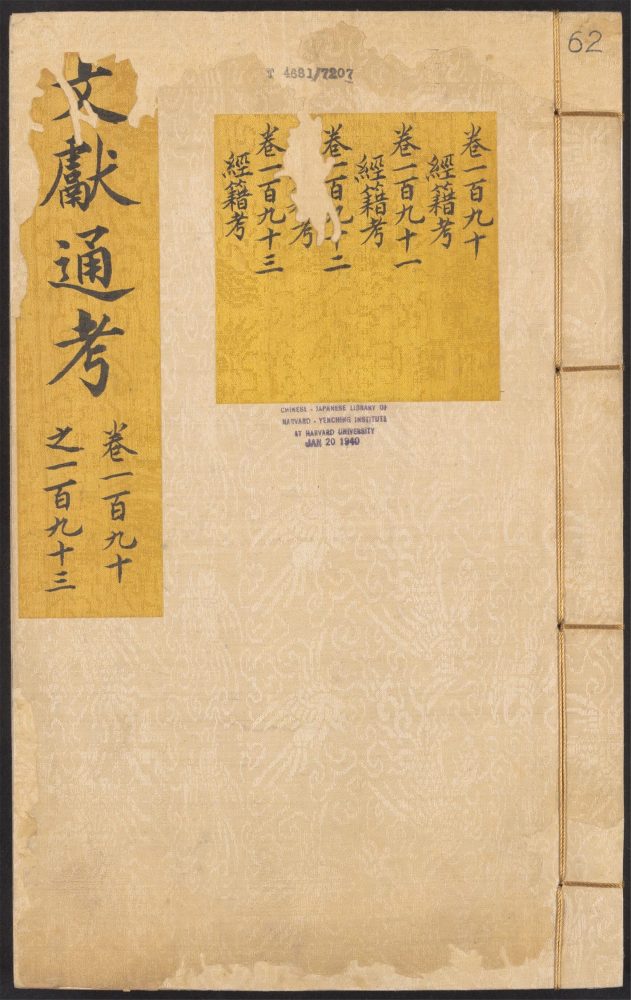 62
T 4681/7207
卷一百九十
經籍考
卷一百九十一
經籍考
卷一百九十二
考
卷一百九十三
經籍考
文獻通考
卷一百九十
之一百九十三
CHINESE - JAPANESE LIBRARY OF
HARVARD - YENCHING INSTITUTE
AT HARVARD UNIVERSITY
JAN 20 1940